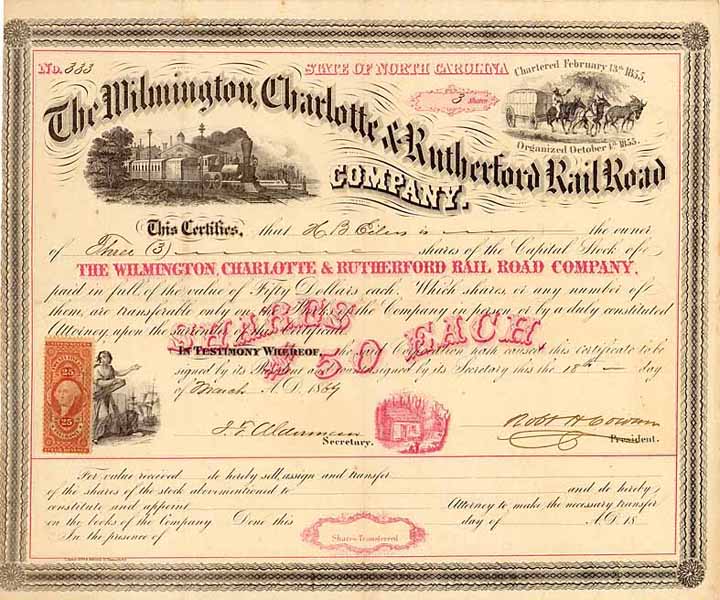 No. 333
STATE OF NORTH CAROLINA
Chartered February 13th 1855.
3 Shares
Organized October 4th 1855.
The Wilmington, Charlotte & Rutherford Rail Road
COMPANY.
This Certifies, that H B Eilers is the owner
of Three (3) shares of the Capital Stock of
THE WILMINGTON, CHARLOTTE & RUTHERFORD RAIL ROAD COMPANY,
paid in full, of the value of Fifty Dollars each. Which shares or any number of
them, are transferable only on the Books of the Company in person or by a duly constituted
Attorney, upon the surrender of this Certificate
SHARES
$50 EACH.
In Testimony Whereof, the said Corporation hath caused this certificate to be
signed by its President and countersigned by its Secretary this the 18th day
of March A.D. 1869
25 25
25
J. T. Alderman
Secretary.
Robt H Cowan
President.
For value received do hereby sell, assign and transfer
of the shares of the stock abovementioned to and do hereby
constitute and appoint Attorney to make the necessary transfer
on the books of the Company Done this day of A.D. 18
In the presence of
Shares Transferred